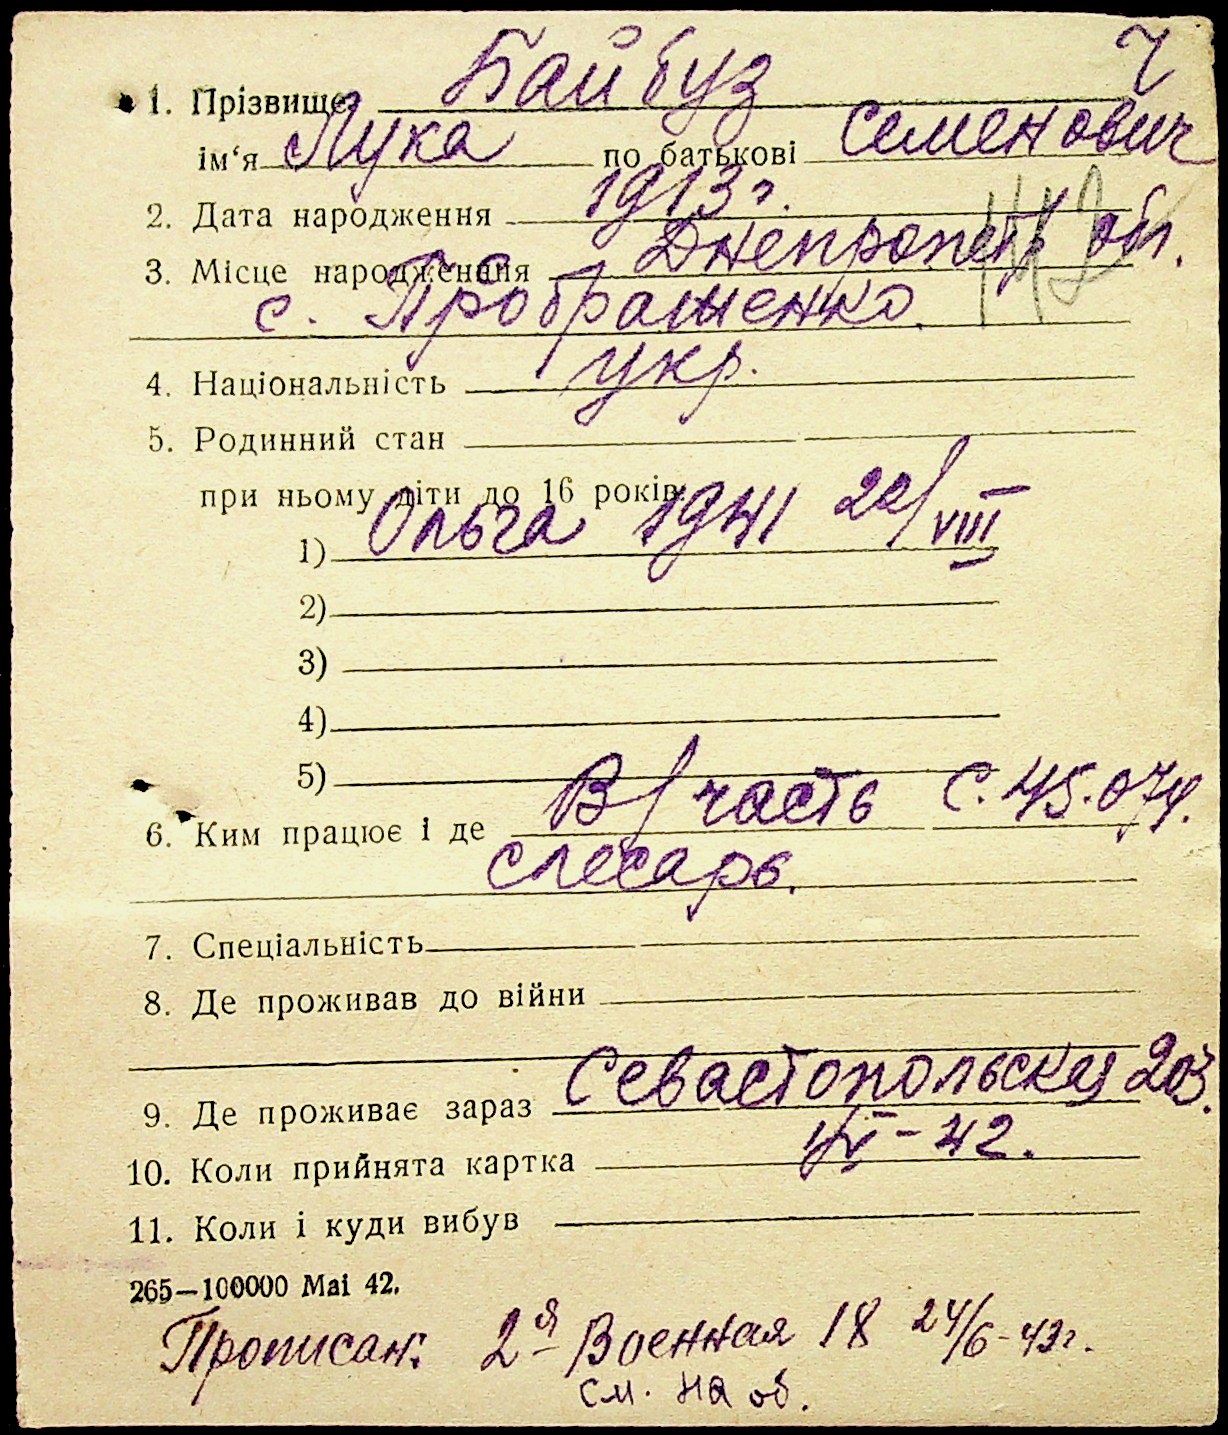 Ч
1. Прізвище Байбуз
ім‘я Лука по батькові Семенович
2. Дата народження 1913 г.
3. Місце народження Днепропетр обл.
с. Прображенко.
4. Національність укр.
5. Родинний стан
при ньому діти до 16 років:
1) Ольга 1941 20/VIII
2)
3)
4)
5)
6. Ким працює і де В/часть С. 45.074.
слесарь.
7. Спеціальність
8. Де проживав до війни
9. Де проживає зараз Севастопольская 203.
10. Коли прийнята картка -42.
11. Коли і куди вибув
265—100000 Mai 42.
Прописан: 2я Военная 18 24/6-43г.
см. на об.